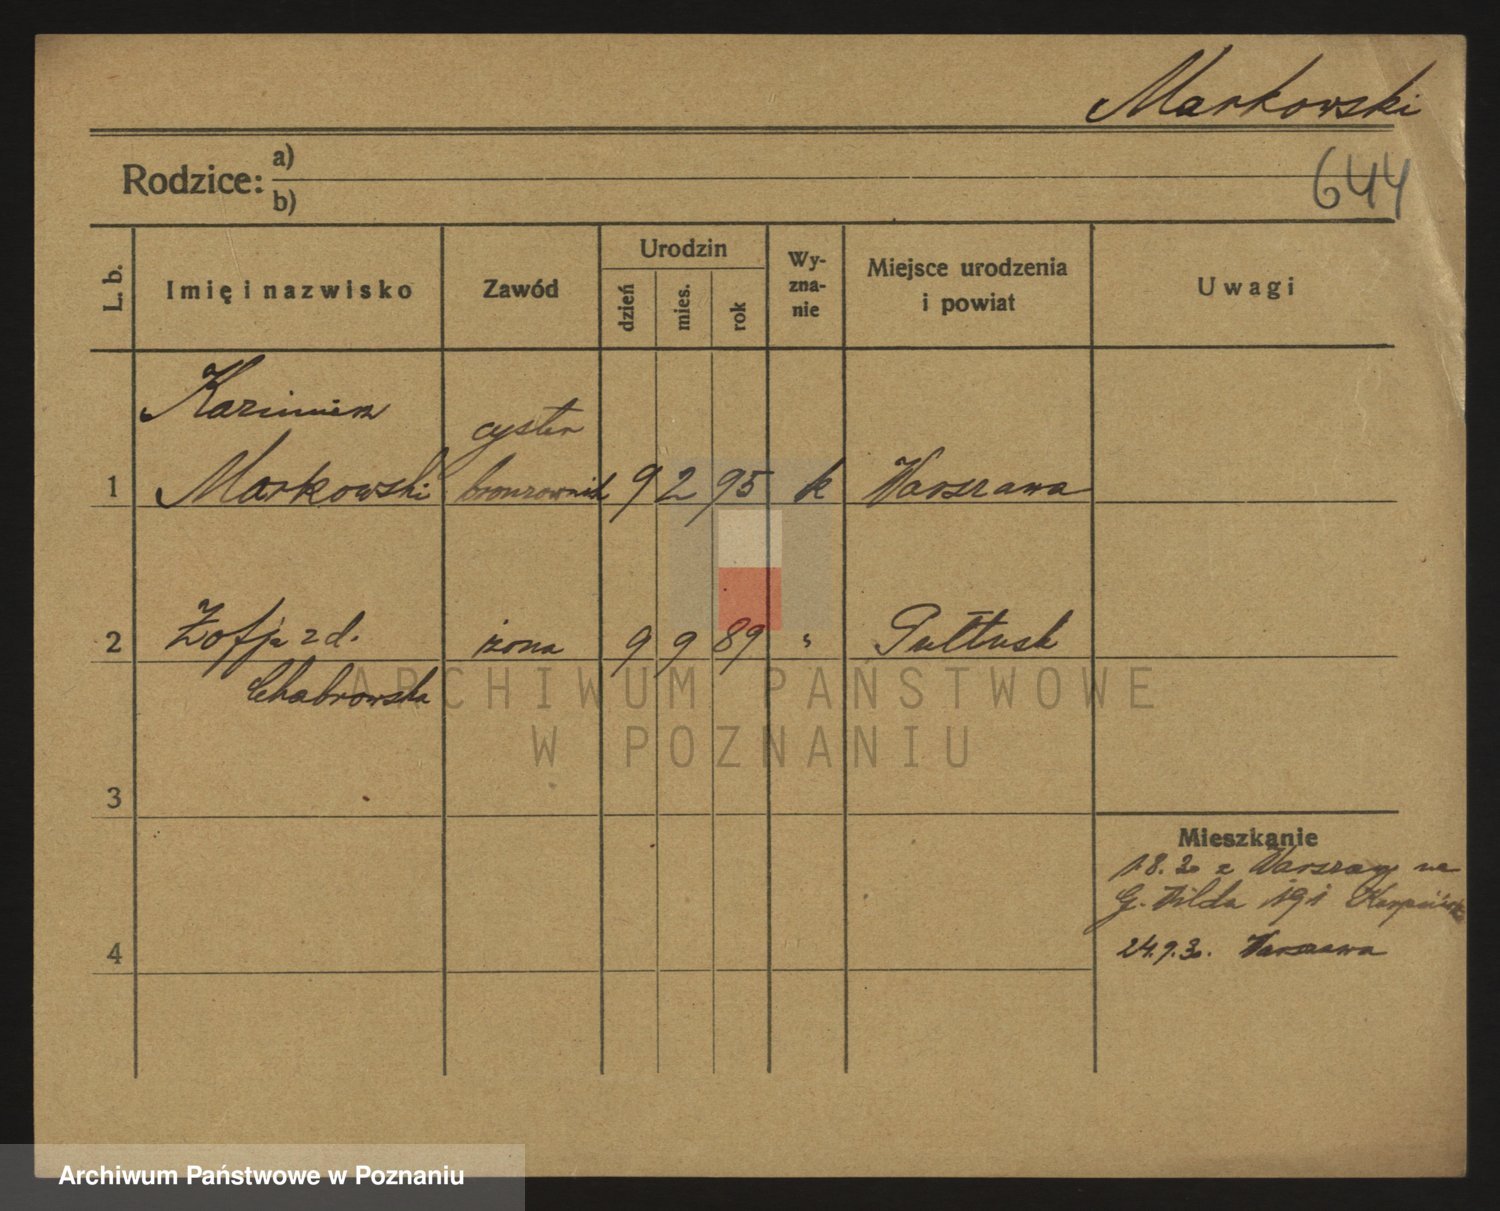 Markowski
644
Rodzice: a)
b)
L. b.
Imię i nazwisko
Zawód
Urodzin
dzień
mies.
rok
Wy-
zna-
nie
Miejsce urodzenia
i powiat
Uwagi
Kazimierz
cyster
1 Markowski bronzownik 9 2 95 k Warszawa
2 Zofja z d. żona 9 9 89 " Pułtusk
Chabrowska
3
Mieszkanie
1.8.30 z Warszawy na
G. Wilda 191
4
24.9.30. Warszawa
ARCHIWUM PAŃSTWOWE
W POZNANIU
Archiwum Państwowe w Poznaniu